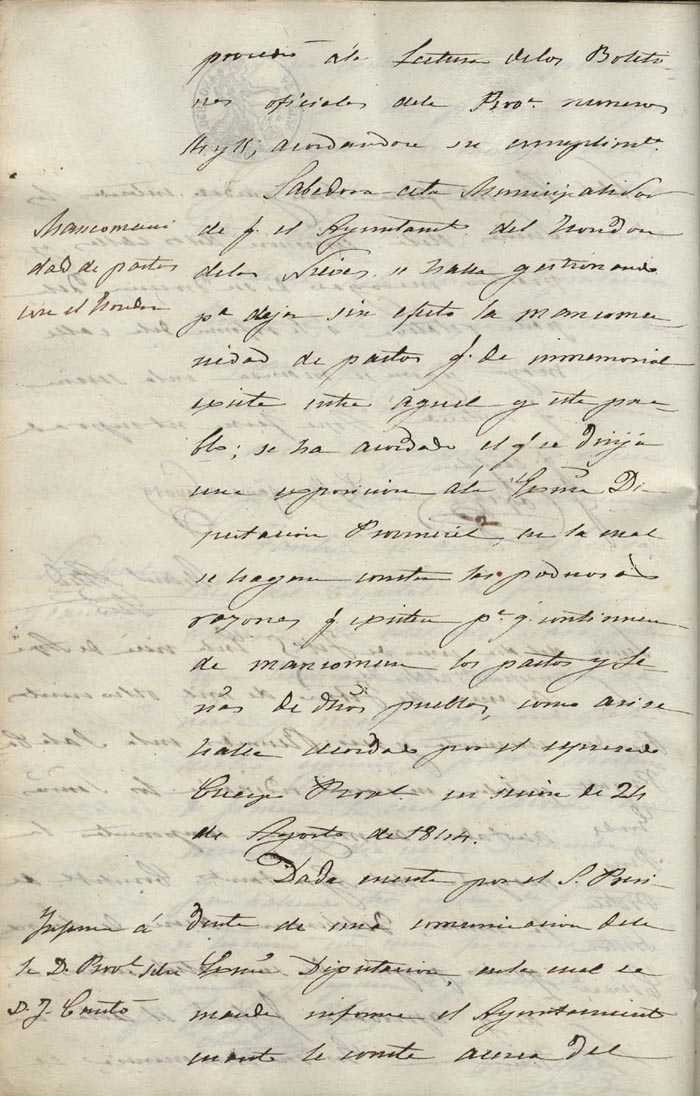 procedio á la Lectura de los Boleti-
nes oficiales de la Prov.ª numeros
14 y 15; acordandose su cumplim.to
Mancomuni
dad de pastos
con el Hondon
Sabedora esta Municipalidad
de q. el Ayuntam.t del Hondon
de las Nieves se halla gestionando
p.ª dejar sin efecto la mancomu
nidad de pastos q. de inmemorial
existe entre aquel y este pue-
blo; se ha acordado el q. se dirija
una esposicion á la Exma Di-
putacion Provincial, en la cual
se hagan constar las poderosas
razones q. existen p.ª q. continuen
de mancomun los pastos y Le-
ñas de dhos pueblos, como asi se
halla acordado por el espresado
Cuerpo Provl. en sesion de 24
de Agosto de 1844.
Informe á
la D. Provl. sobre
D. J. Cantó
Dada cuenta por el S. Presi
dente de una comunicacion de la
Exma Diputacion, en la cual se
manda informe el Ayuntamiento
cuanto le conste acerca del